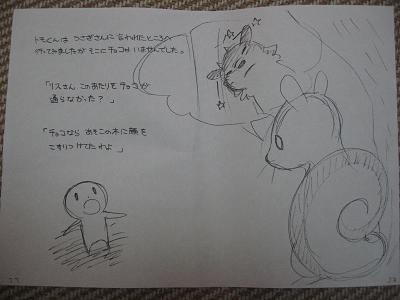 トモくんは うさぎさんに 言われたところへ
行ってみましたが そこに チョコは いませんでした。
「リスさん、このあたりを チョコが
通らなかった？」
「チョコなら あそこの木に 腰を
こすりつけてたわよ」